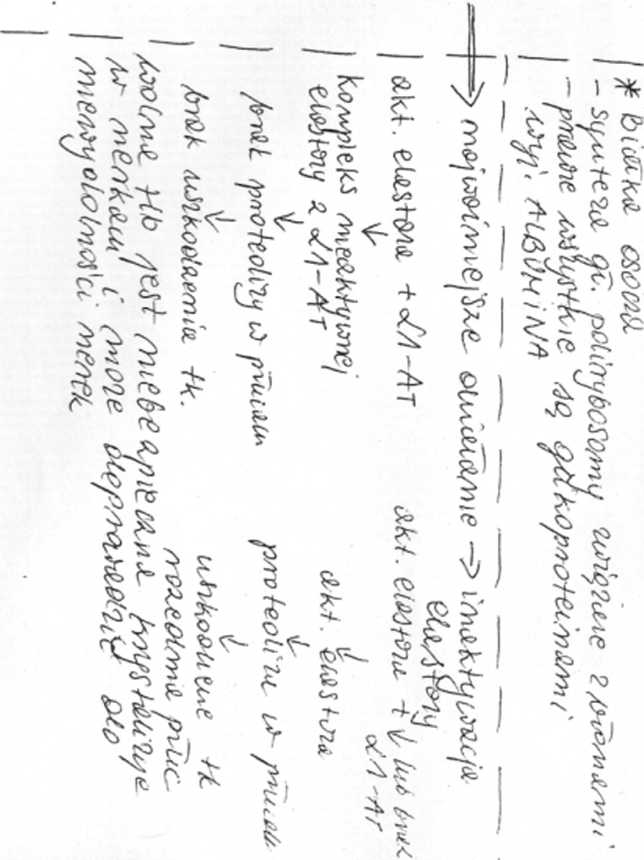 * Białka osocza
- synteza gł. polirybosomy związane z błonami
- prawie wszystkie są glikoproteinami
wyj. ALBUMINA
→ najważniejsze działanie → inaktywacja
elastazy
akt. elastaza + α1-AT akt. elastaza + ↓ lub brak
α1-AT
↓
kompleks nieaktywnej
elastazy z α1-AT akt. elastaza
↓ ↓
brak proteolizy w płucach proteoliza w płucach
↓ ↓
brak uszkodzenia tk. uszkodzenie tk
rozedma płuc
wolna Hb jest niebezpieczna krystalizuje
w nerkach i może doprowadzić do
niewydolności nerek